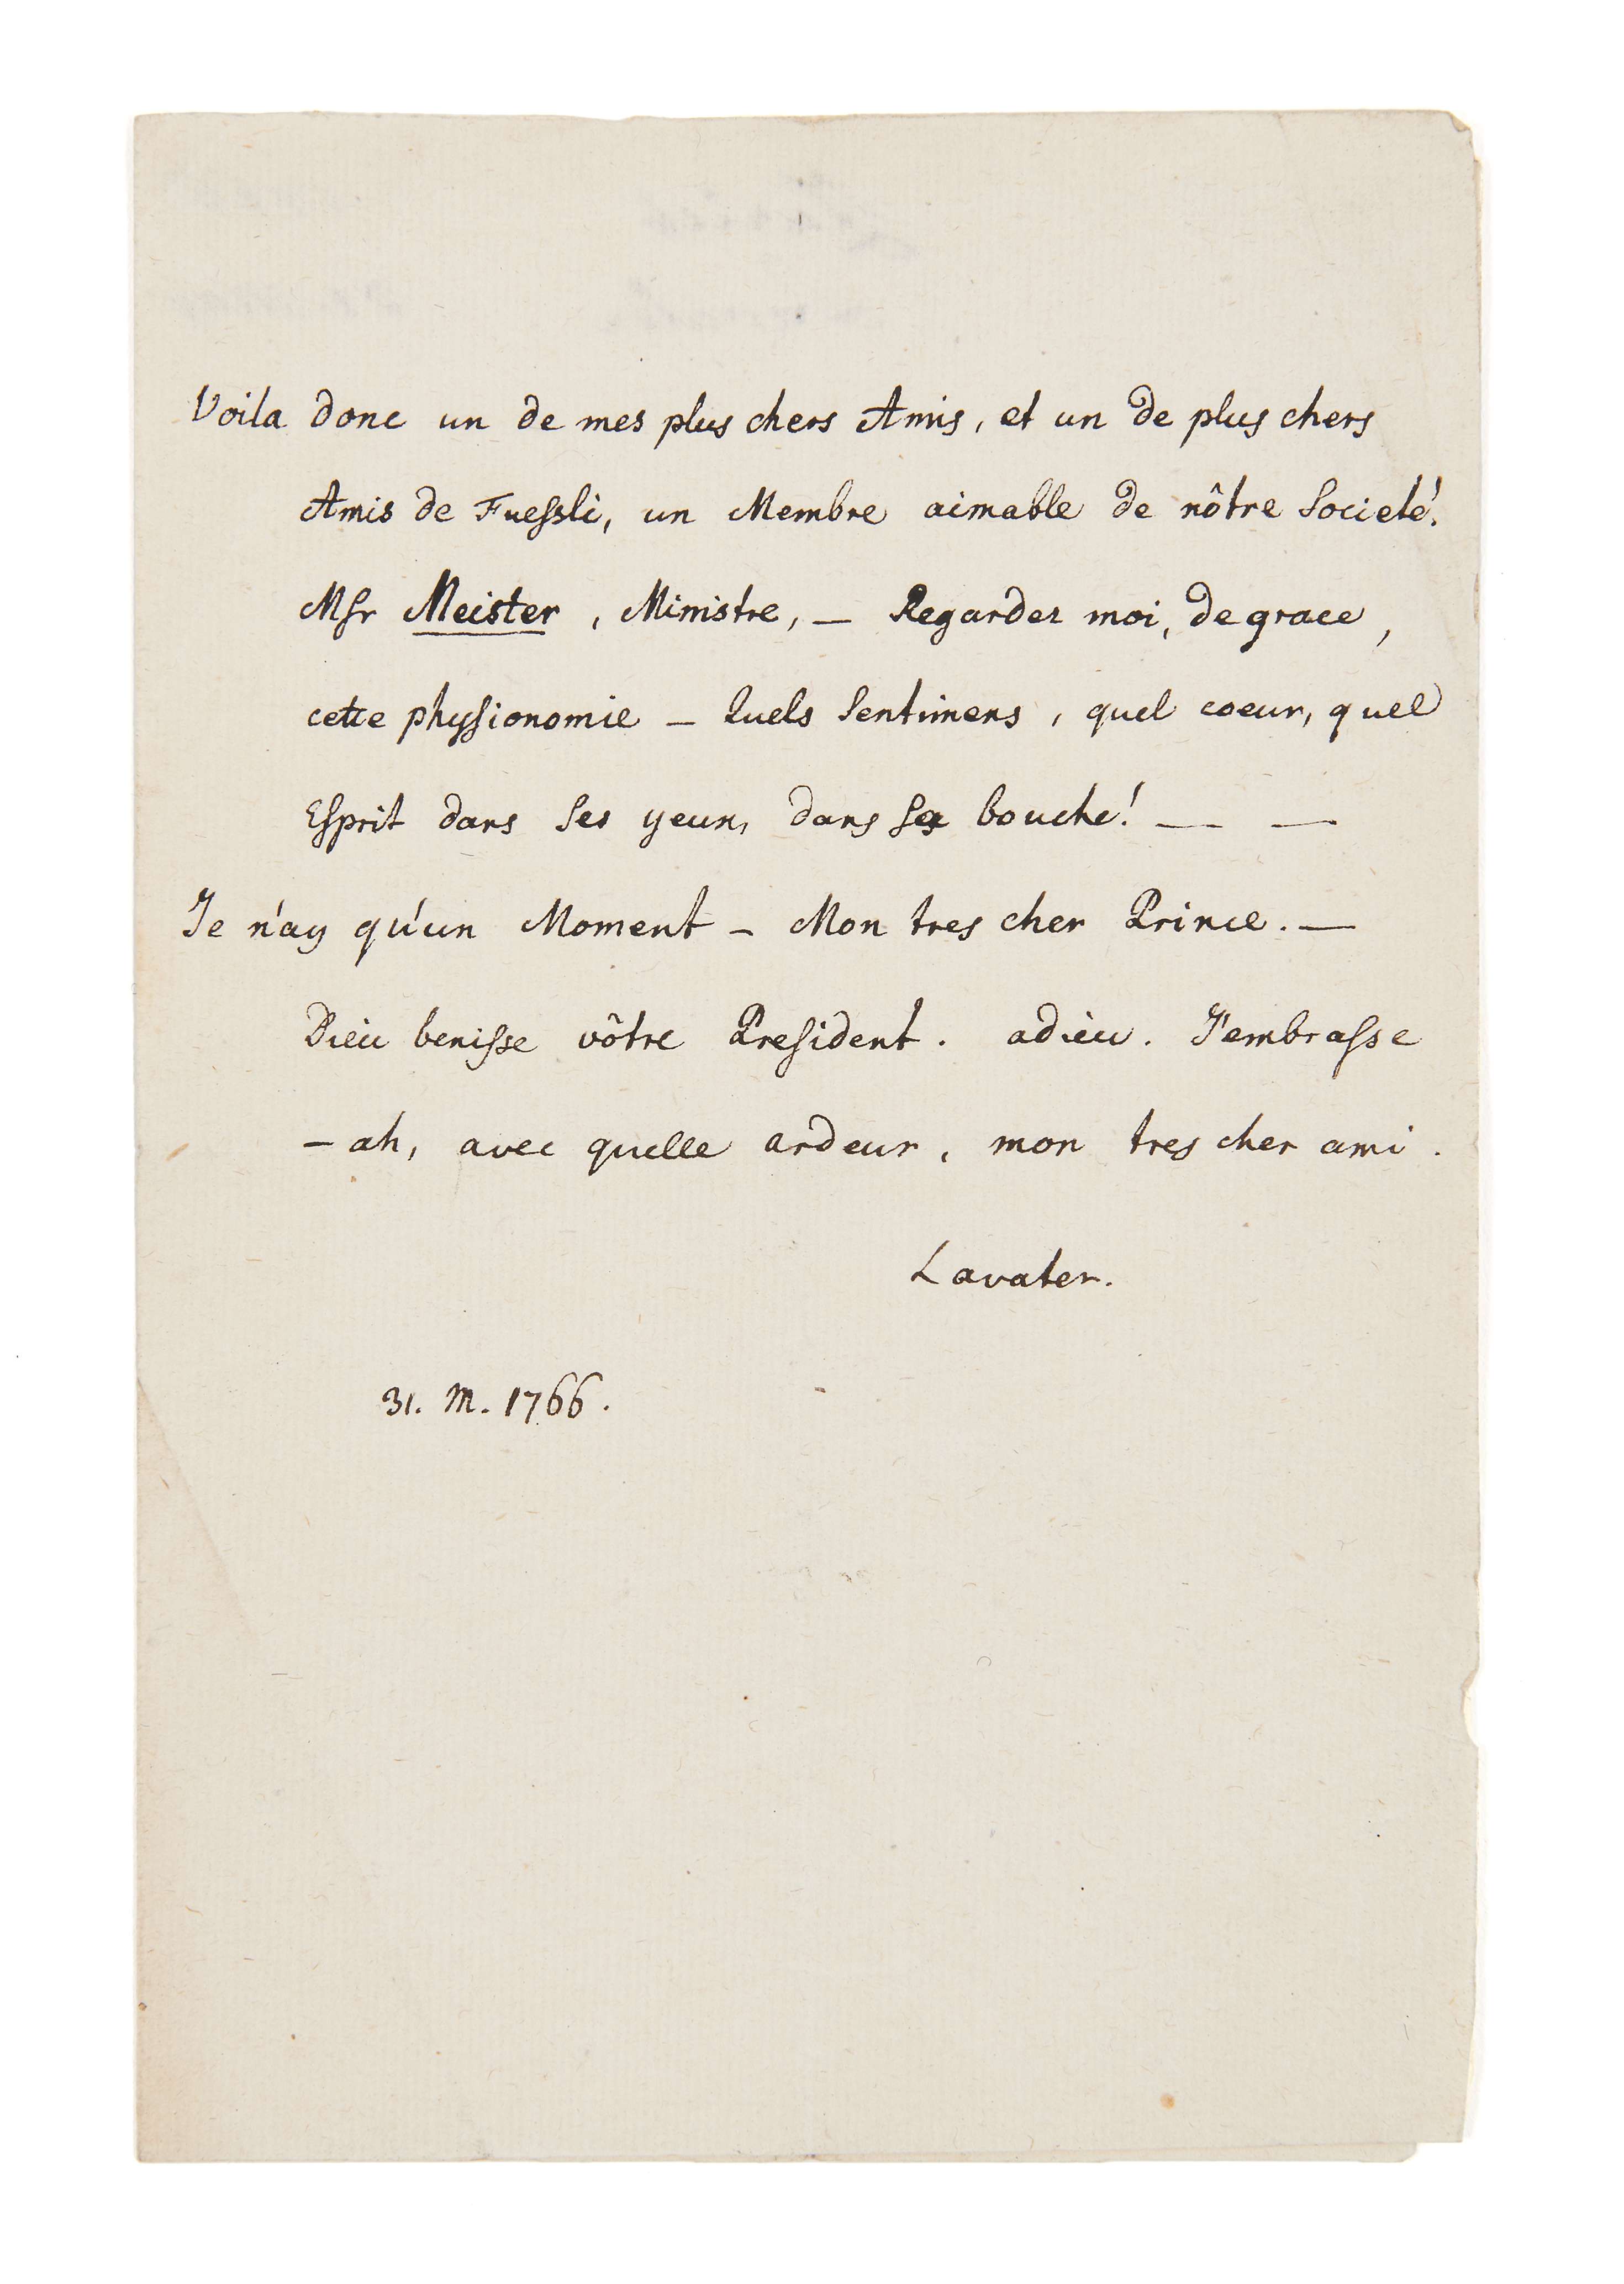 Voila donc un de mes plus chers Amis, et un de plus chers
Amis de Fuessli, un Membre aimable de nôtre Societé.
Msr Meister, Ministre, — Regardez moi, de grace,
cette physionomie — Quels Sentimens, quel coeur, quel
Esprit dans Ses yeux, dans Sa bouche! — —
Je n'ay qu'un Moment — Mon tres cher Prince. —
Dieu benisse vôtre President. adieu. J'embrasse
— ah, avec quelle ardeur, mon tres cher ami.
Lavater.
31. M. 1766.